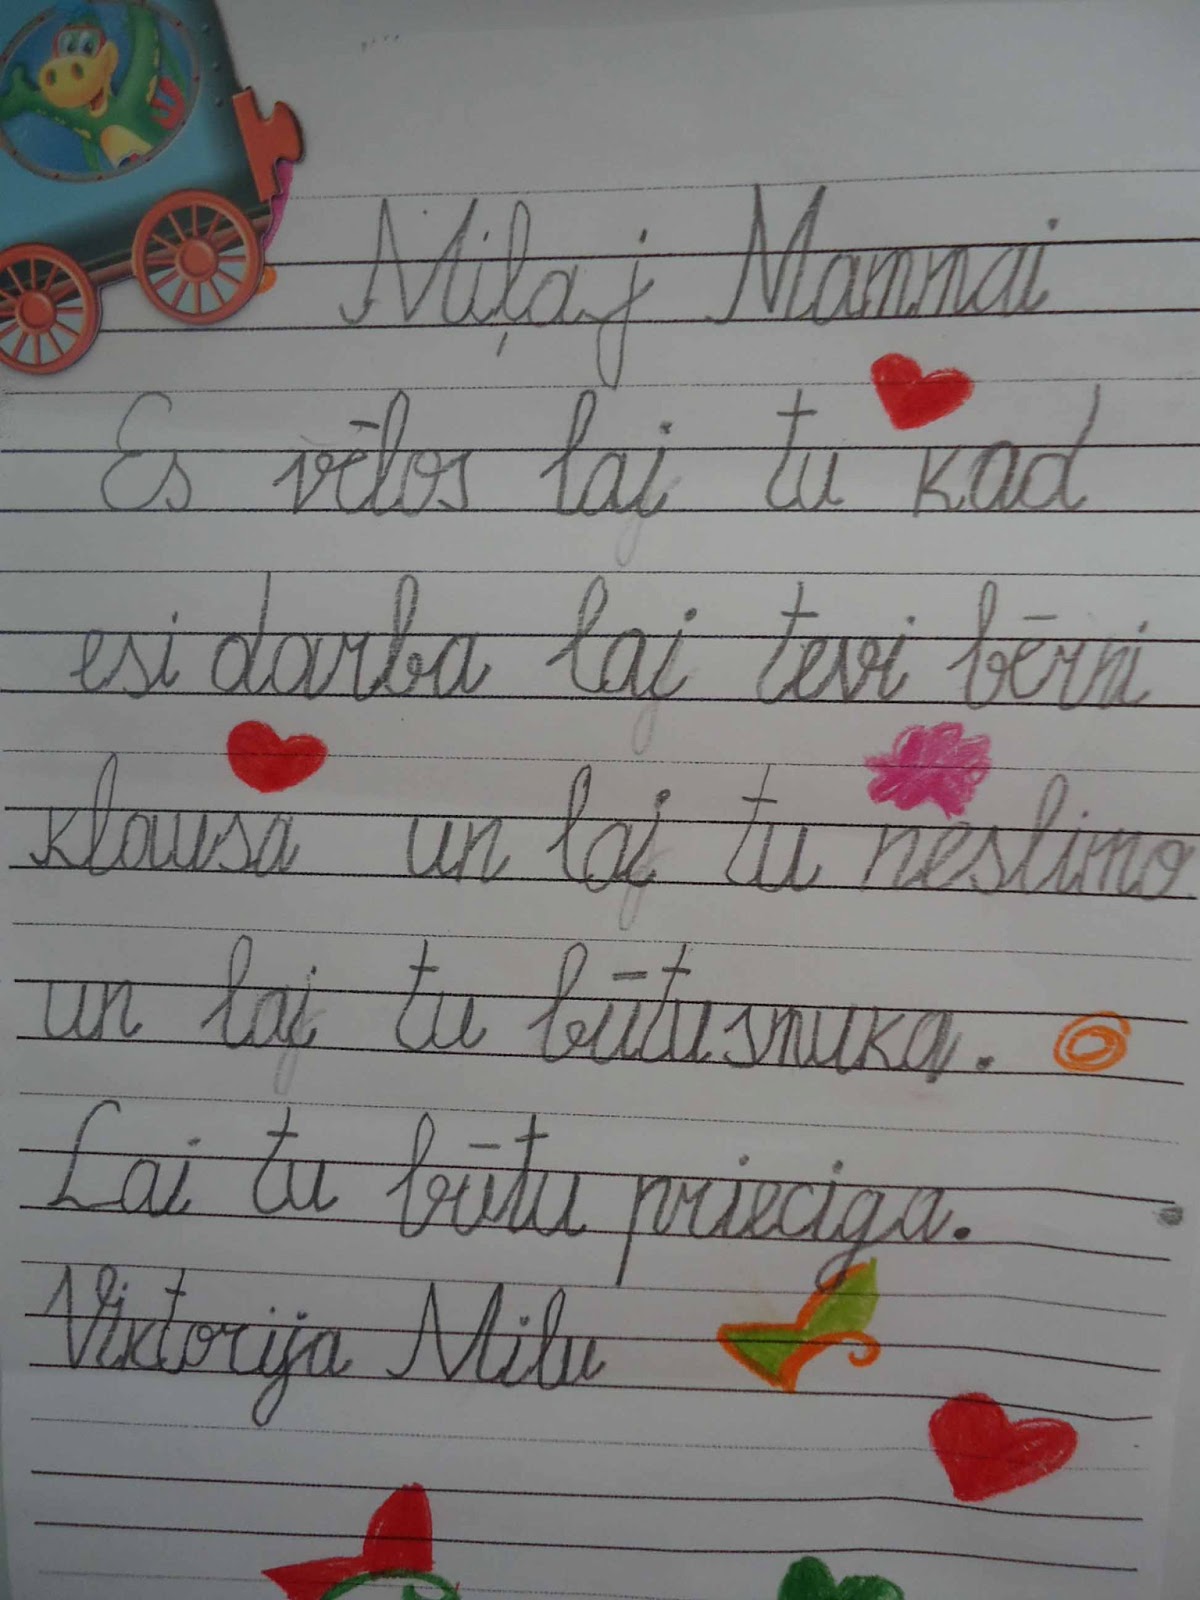 Miļaj Mammai
Es vēlos lai tu kad
esi darba lai tevi bērni
klausa un lai tu neslimo
un lai tu būtu smuka.
Lai tu būtu priecīga.
Viktorija Milu